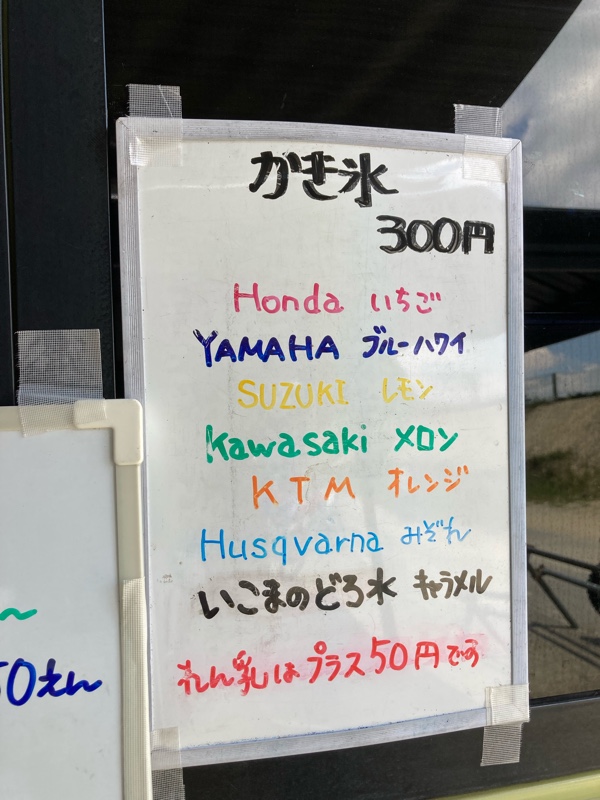 かき氷
300円
Honda いちご
YAMAHA ブルーハワイ
SUZUKI レモン
Kawasaki メロン
KTM オレンジ
Husqvarna みぞれ
いこまのどろ水 キャラメル
れん乳はプラス50円です
〜
50えん